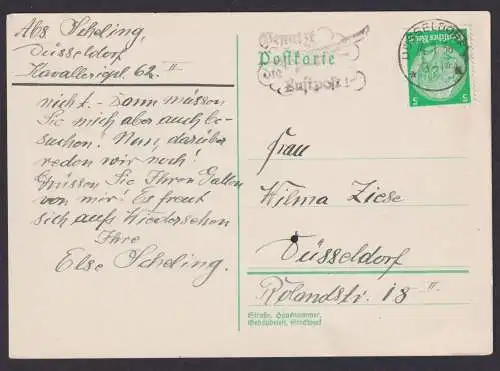 Abs. Scheling,
Düsseldorf
Kavalleriestr. 62 II
nicht. - Dann müssen
Sie mich aber auch be-
suchen! Nun, darüber
reden wir noch!
Grüssen Sie Ihren Gatten
von mir! Es freut
sich aufs Wiedersehen
Ihre
Else Scheling.
Benutzt
Postkarte
die
Luftpost!
DÜSSELDORF
Deutsches Reich
5 5
Frau
Wilma Ziese
Düsseldorf
Rolandstr. 18 II.
Straße, Hausnummer,
Gebäudeteil, Stockwerk